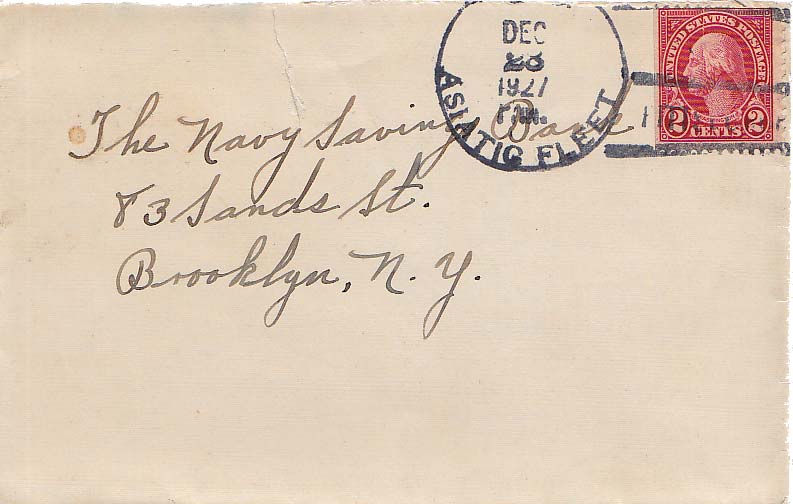 UNITED STATES POSTAGE
2 CENTS 2
DEC
28
1927
ASIATIC FLEET
The Navy Saving Bank
83 Sands St.
Brooklyn, N. Y.